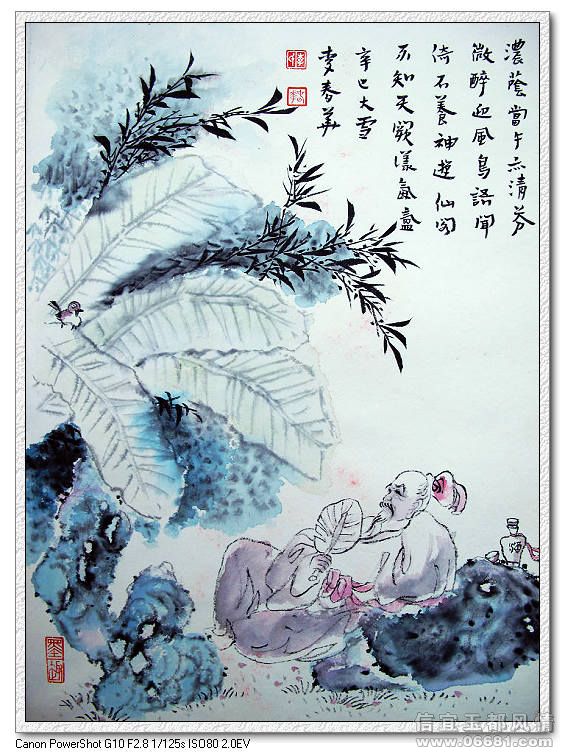 濃蔭當午亦清芬
微醉迎風鳥語聞
倚石養神遊仙閣
不知天
辛巳大雪
李春華
酒
信宜玉都风情
www.06681.com
Canon PowerShot G10 F2.8 1/125s ISO80 2.0EV